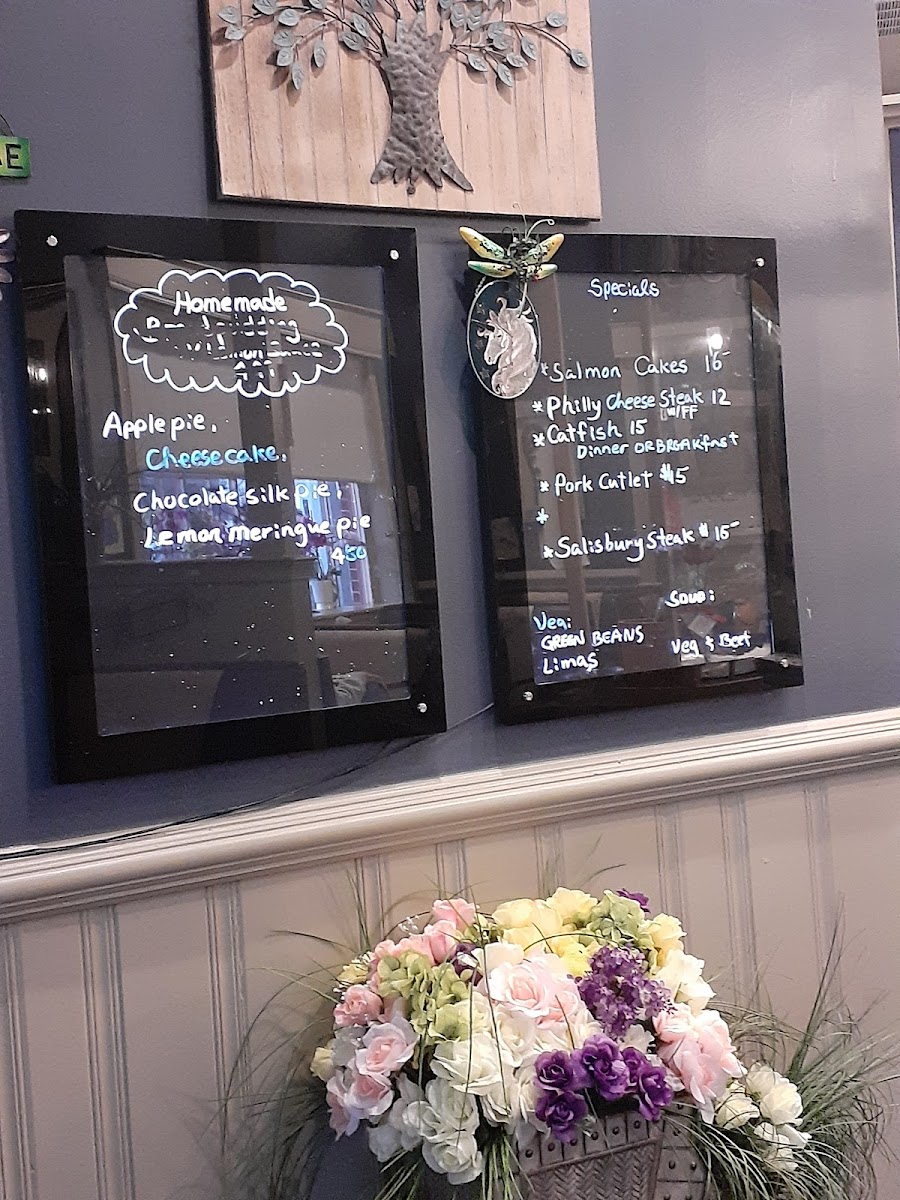 Homemade
Apple pie,
Cheesecake,
Chocolate silk pie,
Lemon meringue pie
450
Specials
*Salmon Cakes 16-
*Philly Cheese Steak 12
w/FF
*Catfish 15
Dinner OR BREAKfast
* Pork Cutlet $15
*
*Salisbury Steak $ 15-
Soup:
Veg:
GREEN BEANS
Limas
Veg & Beef